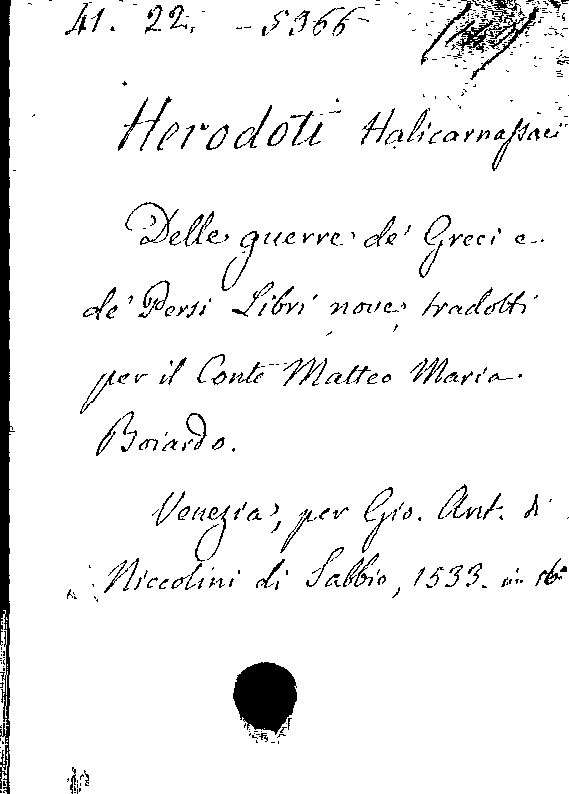 41. 22. - 5366
Herodoti Halicarnassaei
Delle guerre de' Greci e
de' Persi Libri nove, tradotti
per il Conte Matteo Maria
Boiardo.
Venezia, per Gio. Ant. di
Niccolini di Sabbio, 1533. in 16°